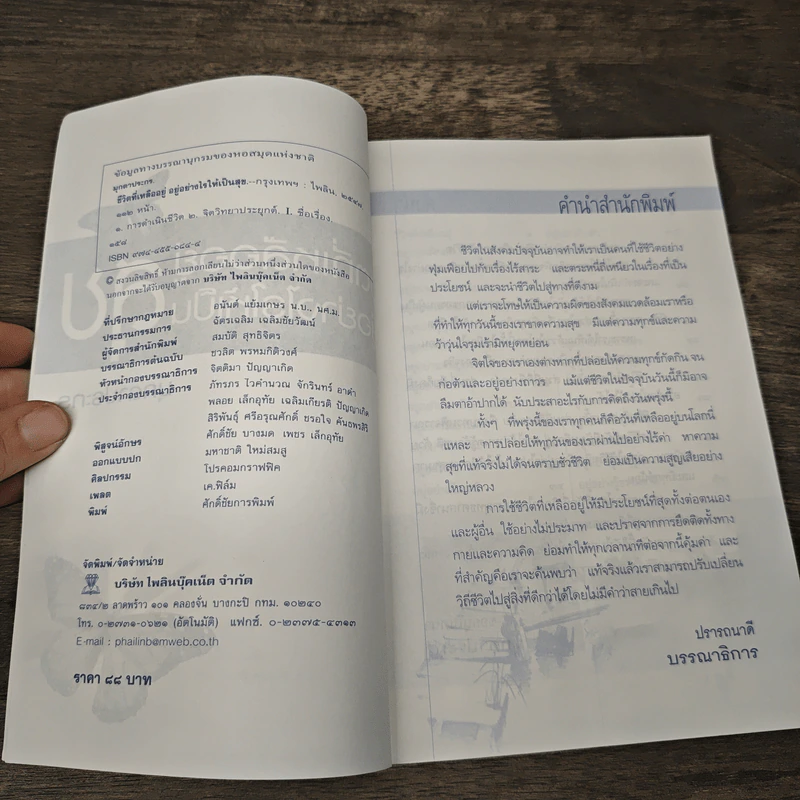 ข้อมูลทางบรรณานุกรมของหอสมุดแห่งชาติ
มุกดาประกร.
ชีวิตที่เหลืออยู่ อยู่อย่างไรให้เป็นสุข.--กรุงเทพฯ : ไพลิน, ๒๕๔๗
๑๑๒ หน้า.
๑. การดำเนินชีวิต ๒. จิตวิทยาประยุกต์. I. ชื่อเรื่อง.
๑๕๘
ISBN ๙๗๔-๔๕๕-๐๘๔-๔
© สงวนลิขสิทธิ์ ห้ามการลอกเลียนไม่ว่าส่วนหนึ่งส่วนใดของหนังสือ
นอกจากจะได้รับอนุญาตจาก บริษัท ไพลินบุ๊คเน็ต จำกัด
ที่ปรึกษากฎหมาย อนันต์ แย้มเกษร น.บ., นศ.ม.
ประธานกรรมการ ฉัตรเฉลิม เฉลิมชัยวัฒน์
ผู้จัดการสำนักพิมพ์ สมบัติ สุทธิจิตร
บรรณาธิการต้นฉบับ ชวลิต พรหมกิติวงศ์
หัวหน้ากองบรรณาธิการ จิตติมา ปัญญาเกิด
ประจำกองบรรณาธิการ ภัทรภร ไวคำนวณ จักรินทร์ อาดำ
พลอย เล็กอุทัย เฉลิมเกียรติ ปัญญาเกิด
สิริพันธุ์ ศรีอรุณศักดิ์ ชรอใจ คันธพรสิริ
พิสูจน์อักษร ศักดิ์ชัย บางมด เพชร เล็กอุทัย
ออกแบบปก มหาชาติ ใหม่สมสู
ศิลปกรรม โปรคอมกราฟฟิค
เพลต เค.ฟิล์ม
พิมพ์ ศักดิ์ชัยการพิมพ์
จัดพิมพ์/จัดจำหน่าย
บริษัท ไพลินบุ๊คเน็ต จำกัด
๘๓๔/๒ ลาดพร้าว ๑๐๑ คลองจั่น บางกะปิ กทม. ๑๐๒๔๐
โทร. ๐-๒๗๓๑-๐๖๒๑ (อัตโนมัติ) แฟกซ์. ๐-๒๓๗๕-๔๓๑๓
E-mail : phailinb@mweb.co.th
ราคา ๘๘ บาท
คำนำสำนักพิมพ์
ชีวิตในสังคมปัจจุบันอาจทำให้เราเป็นคนที่ใช้ชีวิตอย่าง
ฟุ่มเฟือยไปกับเรื่องไร้สาระ และตระหนี่ถี่เหนียวในเรื่องที่เป็น
ประโยชน์ และจะนำชีวิตไปสู่ทางที่ดีงาม
แต่เราจะโทษให้เป็นความผิดของสังคมแวดล้อมเราหรือ
ที่ทำให้ทุกวันนี้ของเราขาดความสุข มีแต่ความทุกข์และความ
ว้าวุ่นใจรุมเร้ามิหยุดหย่อน
จิตใจของเราเองต่างหากที่ปล่อยให้ความทุกข์กัดกิน จน
ก่อตัวและอยู่อย่างถาวร แม้แต่ชีวิตในปัจจุบันวันนี้ก็มิอาจ
ลืมตาอ้าปากได้ นับประสาอะไรกับการคิดถึงวันพรุ่งนี้
ทั้งๆ ที่พรุ่งนี้ของเราทุกคนก็คือวันที่เหลืออยู่บนโลกนี่
แหละ การปล่อยให้ทุกวันของเราผ่านไปอย่างไร้ค่า หาความ
สุขที่แท้จริงไม่ได้จนตราบชั่วชีวิต ย่อมเป็นความสูญเสียอย่าง
ใหญ่หลวง
การใช้ชีวิตที่เหลืออยู่ให้มีประโยชน์ที่สุดทั้งต่อตนเอง
และผู้อื่น ใช้อย่างไม่ประมาท และปราศจากการยึดติดทั้งทาง
กายและความคิด ย่อมทำให้ทุกเวลานาทีต่อจากนี้คุ้มค่า และ
ที่สำคัญคือเราจะค้นพบว่า แท้จริงแล้วเราสามารถปรับเปลี่ยน
วิถีชีวิตไปสู่สิ่งที่ดีกว่าได้โดยไม่มีคำว่าสายเกินไป
ปรารถนาดี
บรรณาธิการ